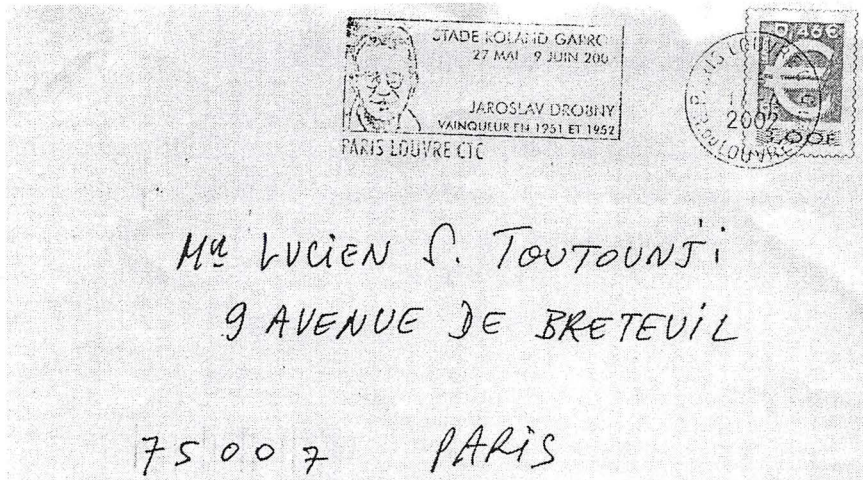 STADE ROLAND GARRO
27 MAI 9 JUIN 200
JAROSLAV DROBNY
VAINQUEUR EN 1951 ET 1952
PARIS LOUVRE CTC
0,46€
PARIS LOUVRE
2002
3,00F
Mr LUCIEN S. TOUTOUNJi
9 AVENUE DE BRETEUiL
75007 PARiS